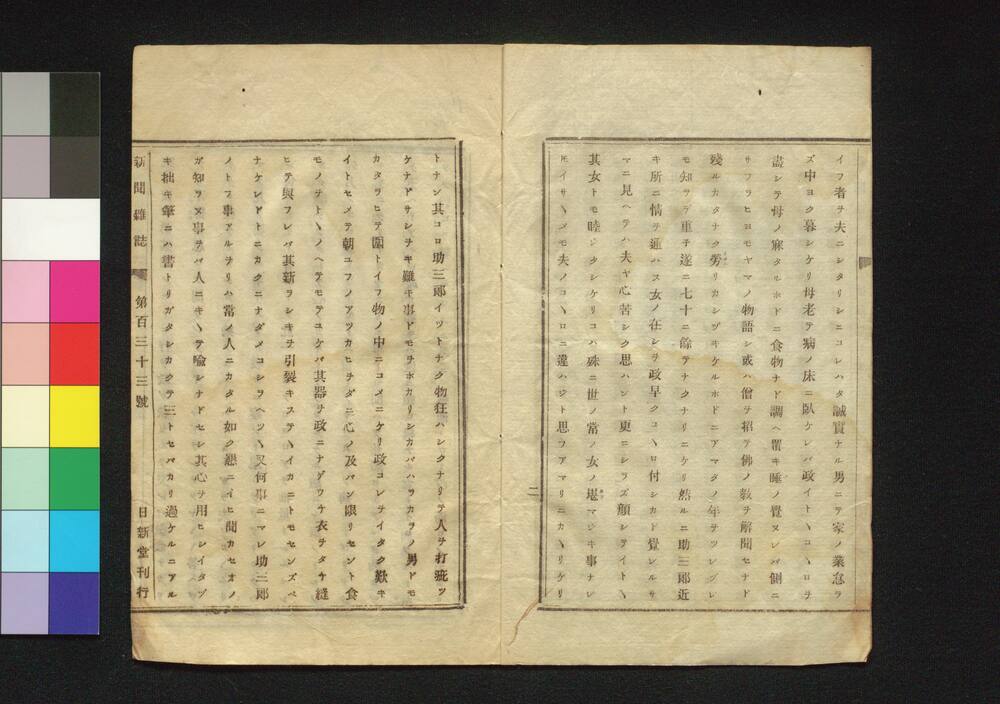 イフ者ヲ夫ニシタリシニコレハタ誠實ナル男ニテ家ノ業怠ラ
ズ中ヨク暮シケリ母老テ病ノ床ニ臥ケレバ政イトヽコヽロヲ
盡シテ母ノ寐タルホドニ食物ナド調ヘ置キ睡ノ覺ヌレバ側ニ
サフラヒヨモヤマノ物語シ或ハ僧ヲ招テ佛ノ敎ヲ解聞セナド
殘ルカタナク勞リカシヅキケルホドニアマタノ年ヲツレヅレ
モ知ラデ重子遂ニ七十ニ餘テナクナリニケリ然ルニ助三郎近
キ所ニ情ヲ通ハス女ノ在シヲ政早クコヽロ付シカド覺シルサ
マニ見ヘテハ夫ヤ心苦シク思ハント更ニシラズ顏シテイトヽ
其女トモ睦ジクシケリコハ殊ニ世ノ常ノ女ノ堪マジキ事ナレ
圧イサヽメモ夫ノコヽロニ違ハジト思フアマリニカヽリケリ
二
トナン其コロ助三郎イツトナク物狂ハシクナリテ人ヲ打疵ツ
ケナドサシヲキ難キ事ドモヲホカリシカバハラカラノ男ドモ
カタラヒテ圍トイフ物ノ中ニコメニケリ政コレヲイタク歎キ
イトセメテ朝ユフノアツカヒヲダニ心ノ及バン限リセント食
モノヲトヽノヘテモテユケバ其器ヲ政ニナゲウケ衣ヲタヤ縫
ヒテ與フレバ其新ヲシキヲ引裂キステヽイカニトモセンズベ
ナケレドトニカクニナダメコシラヘツヽ又何事ニマレ助三郎
ノトフ事アルヲリハ常ノ人ニカタル如ク懇ニイヒ聞カセオノ
ガ知ラヌ事ヲバ人ニキヽテ喩シナドセシ其心ヲ用ヒシイタヅ
キ拙キ筆ニハ書トリガタシカクテ三トセバカリ過ケルニアル
新聞雜誌 第百三十三號 日新堂刊行